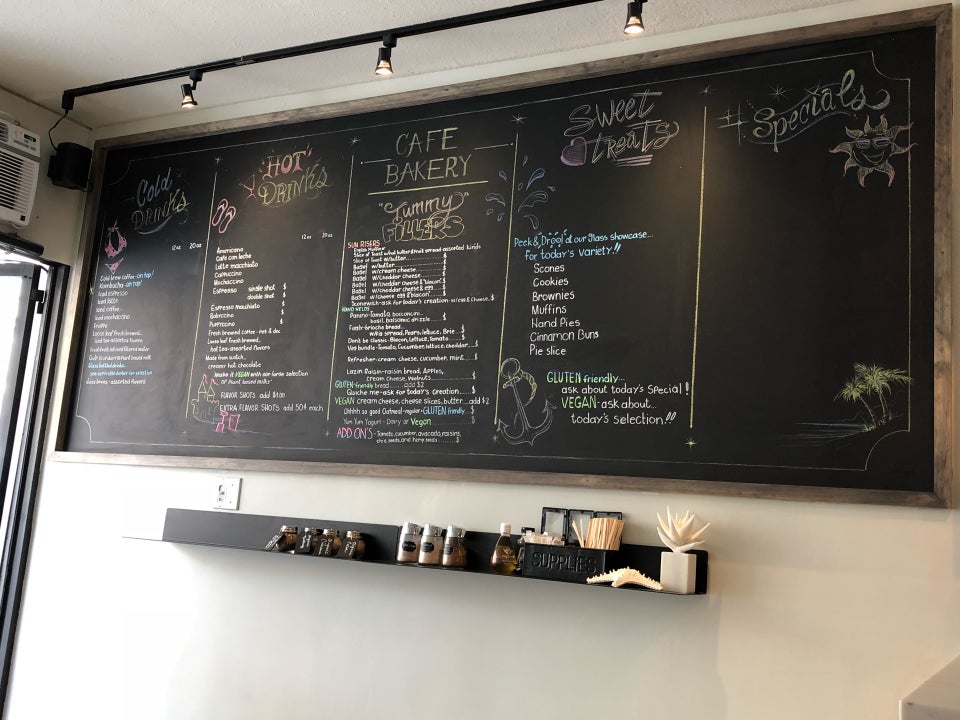 Cold
DRINKS
12 oz 20 oz
Cold brew coffee-on tap!
Kombucha-on tap!
Iced espresso
Iced latte
Iced coffee
Iced mochaccino
Frappe
Loose leaf fresh brewed...
iced tea-assorted flavors
Juice boxes - assorted flavors
HOT
DRINKS
12 oz 20 oz
Americano
Cafe con leche
Latte macchiato
Cappuccino
Mochaccino
Espresso single shot $
double shot $
Espresso macchiato $
Babyccino $
Puppyccino $
Fresh brewed coffee - reg & dec
Loose leaf fresh brewed...
hot tea-assorted flavors
Made from scratch...
creamy hot chocolate
Make it VEGAN with our large selection
of plant based milks
FLAVOR SHOTS add $1.00
EXTRA FLAVOR SHOTS add 50¢ each
CAFE
BAKERY
"Tummy"
FILLERS
SUN RISERS
English Muffin
Slice of Toast w/nut butter&fruit spread-assorted kinds
Slice of Toast w/butter $
Bagel w/butter $
Bagel w/cream cheese $
Bagel w/cheddar cheese $
Bagel w/cheddar cheese & bacon $
Bagel w/cheddar cheese & egg $
Bagel w/cheese egg & bacon $
Sconewich-ask for today's creation-w/egg & cheese $
Panino-Tomato, bocconcini,
basil, balsamic drizzle $
Fancy-brioche bread...
w/fig spread, Pears, lettuce, Brie $
Don't be classic-Bacon, Lettuce, Tomato $
Veg bundle-Tomato, Cucumber, lettuce, cheddar $
Refresher-cream cheese, cucumber, mint $
Lazin Raisin-raisin bread, Apples,
cream cheese, Walnuts $
GLUTEN friendly bread add $2
Quiche me-ask for today's creation $
VEGAN cream cheese, cheese slices, butter add $2
Uhhhh so good Oatmeal-regular-GLUTEN friendly $
Yum Yum Yogurt - Dairy or Vegan $
ADD ON'S - Tomato, cucumber, avocado, raisins,
chia seeds, and hemp seeds $
Sweet
treats
Peek & Drool at our glass showcase...
for today's variety!!
Scones
Cookies
Brownies
Muffins
Hand Pies
Cinnamon Buns
Pie slice
GLUTEN friendly...
ask about today's special!
VEGAN-ask about...
today's selection!!
#Specials
SUPPLIES